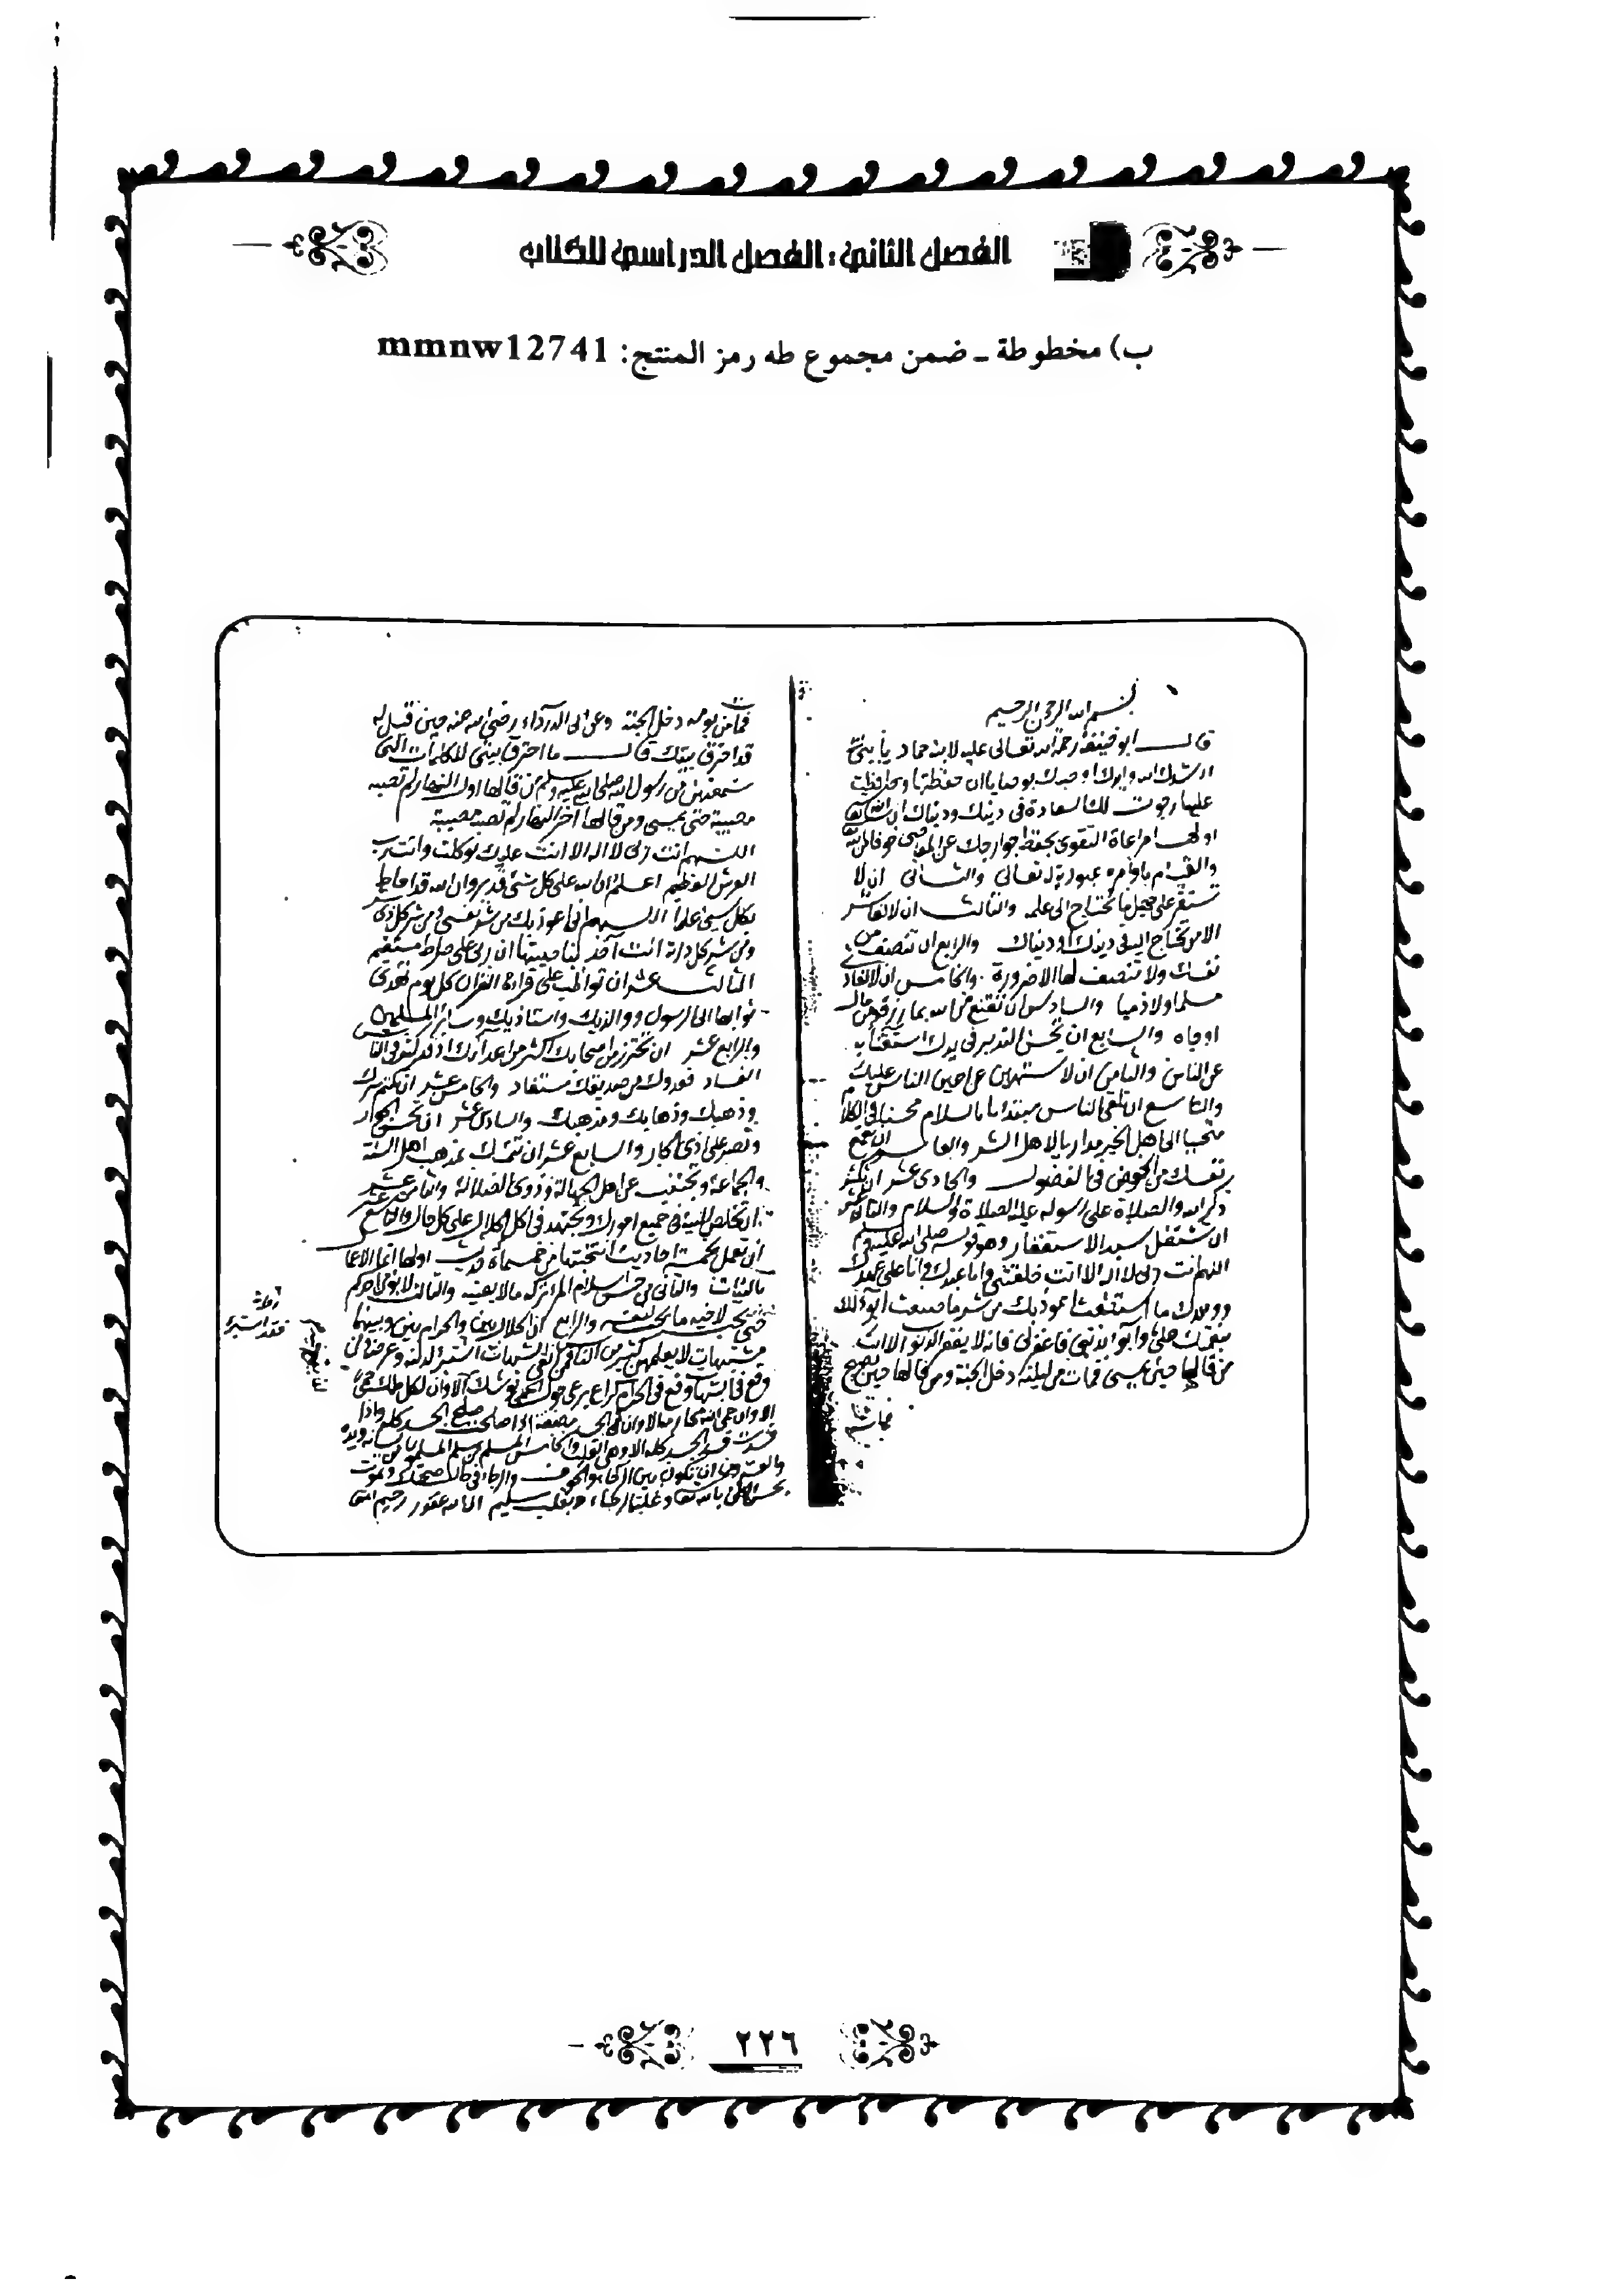 الفصل الثاني: الفصل الدراسي للكتاب
ب) مخطوطة - ضمن مجموع طه رمز المنتج: mmnw12741
بسم الله الرحمن الرحيم
قال ابو حنيفة رحمة الله تعالى عليه لابنه حماد يا بني
ارشدك الله وايدك اوصيك بوصايا ان حفظتها وحافظت
عليها رجوت لك السعادة في دينك ودنياك ان شاء الله
اولها مراعاة التقوى بحفظ جوارحك عن المعاصي خوفا من الله
والقيام باوامره عبودية له تعالى والثاني ان لا
تستقر على جهل ما تحتاج الى علمه والثالث ان لا تعاشر
الا من تحتاج اليه في دينك او دنياك والرابع ان تنصف من
نفسك ولا تنصف لها الا ضرورة والخامس ان لا تعادي
مسلما ولا ذميا والسادس ان تقنع من الله بما رزقك من مال
او جاه والسابع ان تحسن التدبير في يدك استغناء به
عن الناس والثامن ان لا تستهين عين الناس عليك
والتاسع ان تلقى الناس مبتدأ بالسلام محسنا في الكلام
متحببا الى اهل الخير مداريا لاهل الشر والعاشر ان تقمع
نفسك من الخوض في الفضول والحادي عشر ان تكثر
ذكر الله والصلاة على رسوله عليه الصلاة والسلام والثاني عشر
ان تشتغل بسيد الاستغفار وهو قوله صلى الله عليه وسلم
اللهم انت ربي لا اله الا انت خلقتني وانا عبدك وانا على عهدك
ووعدك ما استطعت اعوذ بك من شر ما صنعت ابوء لك
بنعمتك علي وابوء بذنبي فاغفر لي فانه لا يغفر الذنوب الا انت
من قالها حين يمسي فمات من ليلته دخل الجنة ومن قالها حين يصبح
فمات
فمات من يومه دخل الجنة وعن ابي الدرداء رضي الله عنه حين قيل له
قد احترق بيتك قال ما احترق بيتي للكلمات التي
سمعتهن من رسول الله صلى الله عليه وسلم من قالها اول النهار لم تصبه
مصيبة حتى يمسي ومن قالها آخر النهار لم تصبه مصيبة
اللهم انت ربي لا اله الا انت عليك توكلت وانت رب
العرش العظيم اعلم ان الله على كل شئ قدير وان الله قد احاط
بكل شئ علما اللهم اني اعوذ بك من شر نفسي ومن شر كل ذي شر
ومن شر كل دابة انت آخذ بناصيتها ان ربي على صراط مستقيم
الثالث عشر ان تواظب على قراءة القرآن كل يوم تهدي
ثوابها الى الرسول ووالديك واستاذيك وسائر المسلمين
والرابع عشر ان تحترز من اصحابك اكثر من اعدائك اذ قد كثر في الناس
الفساد فعدوك من صديقك مستفاد والخامس عشر ان تكتم سرك
وذهبك وذهابك ومذهبك والسادس عشر ان تحسن الجوار
وتصبر على اذى الجار والسابع عشر ان تتمسك بمذهب اهل السنة
والجماعة وتجتنب عن اهل الجهالة وذوي الضلالة والثامن عشر
ان تخلص النية في جميع امورك وتجتهد في اكل الحلال على كل حال والتاسع عشر
ان تعمل بخمسة احاديث انتخبتها من خمسمائة الف حديث اولها انما الاعمال
بالنيات والثاني من حسن اسلام المرء تركه ما لا يعنيه والثالث لا يؤمن احدكم
حتى يحب لاخيه ما يحب لنفسه والرابع ان الحلال بين والحرام بين وبينهما
مشتبهات لا يعلمهن كثير من الناس فمن اتقى الشبهات استبرأ لدينه وعرضه ومن
وقع في الشبهات وقع في الحرام كراع يرعى حول الحمى يوشك الا وان لكل ملك حمى
الا وان حمى الله محارمه الا وان في الجسد مضغة اذا صلحت صلح الجسد كله واذا
فسدت فسد الجسد كله الا وهي القلب والخامس المسلم من سلم المسلمون من لسانه ويده
والعشرون ان تكون بين الخوف والرجاء في حال صحتك وتموت
بحسن الظن بالله تعالى وغلبة الرجاء وبقلب سليم ان الله غفور رحيم
فقد استبرأ
٢٢٦